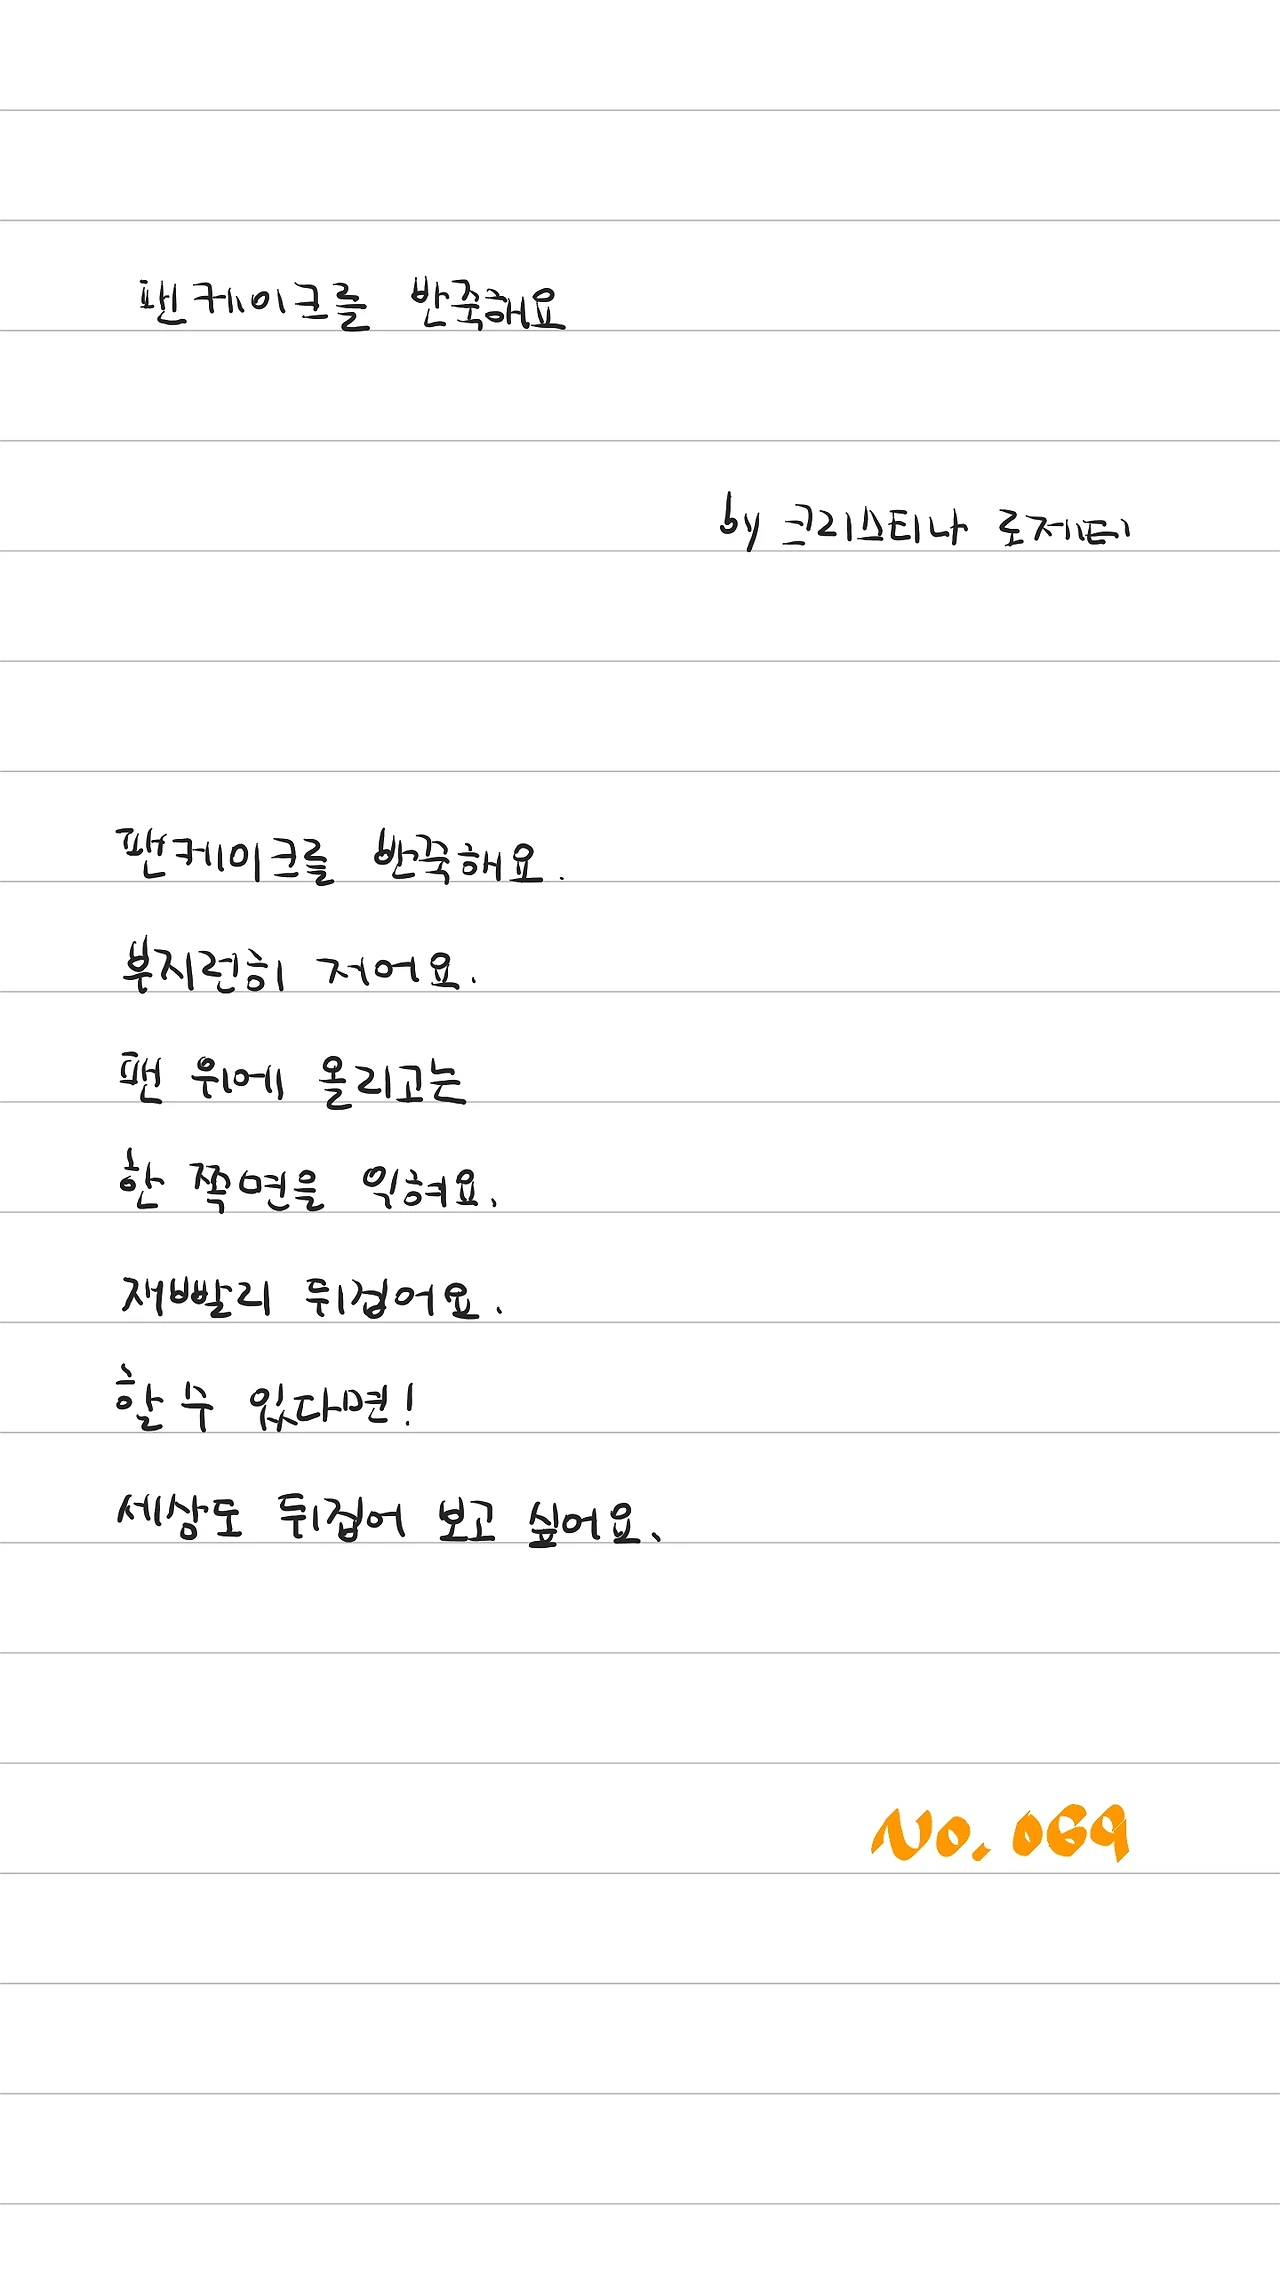 팬케이크를 반죽해요
by 크리스티나 로제티
팬케이크를 반죽해요.
부지런히 저어요.
팬 위에 올리고는
한 쪽면을 익혀요.
재빨리 뒤집어요.
할 수 있다면!
세상도 뒤집어 보고 싶어요.
No. 069